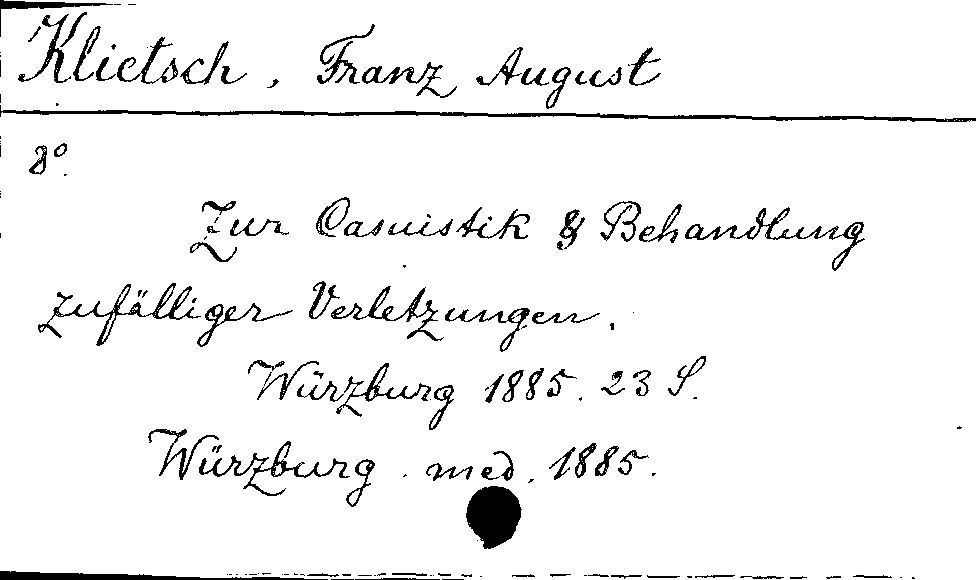 Klietsch, Franz August
8°.
Zur Casuistik & Behandlung
zufälliger Verletzungen.
Würzburg 1885. 23 S.
Würzburg. med. 1885.